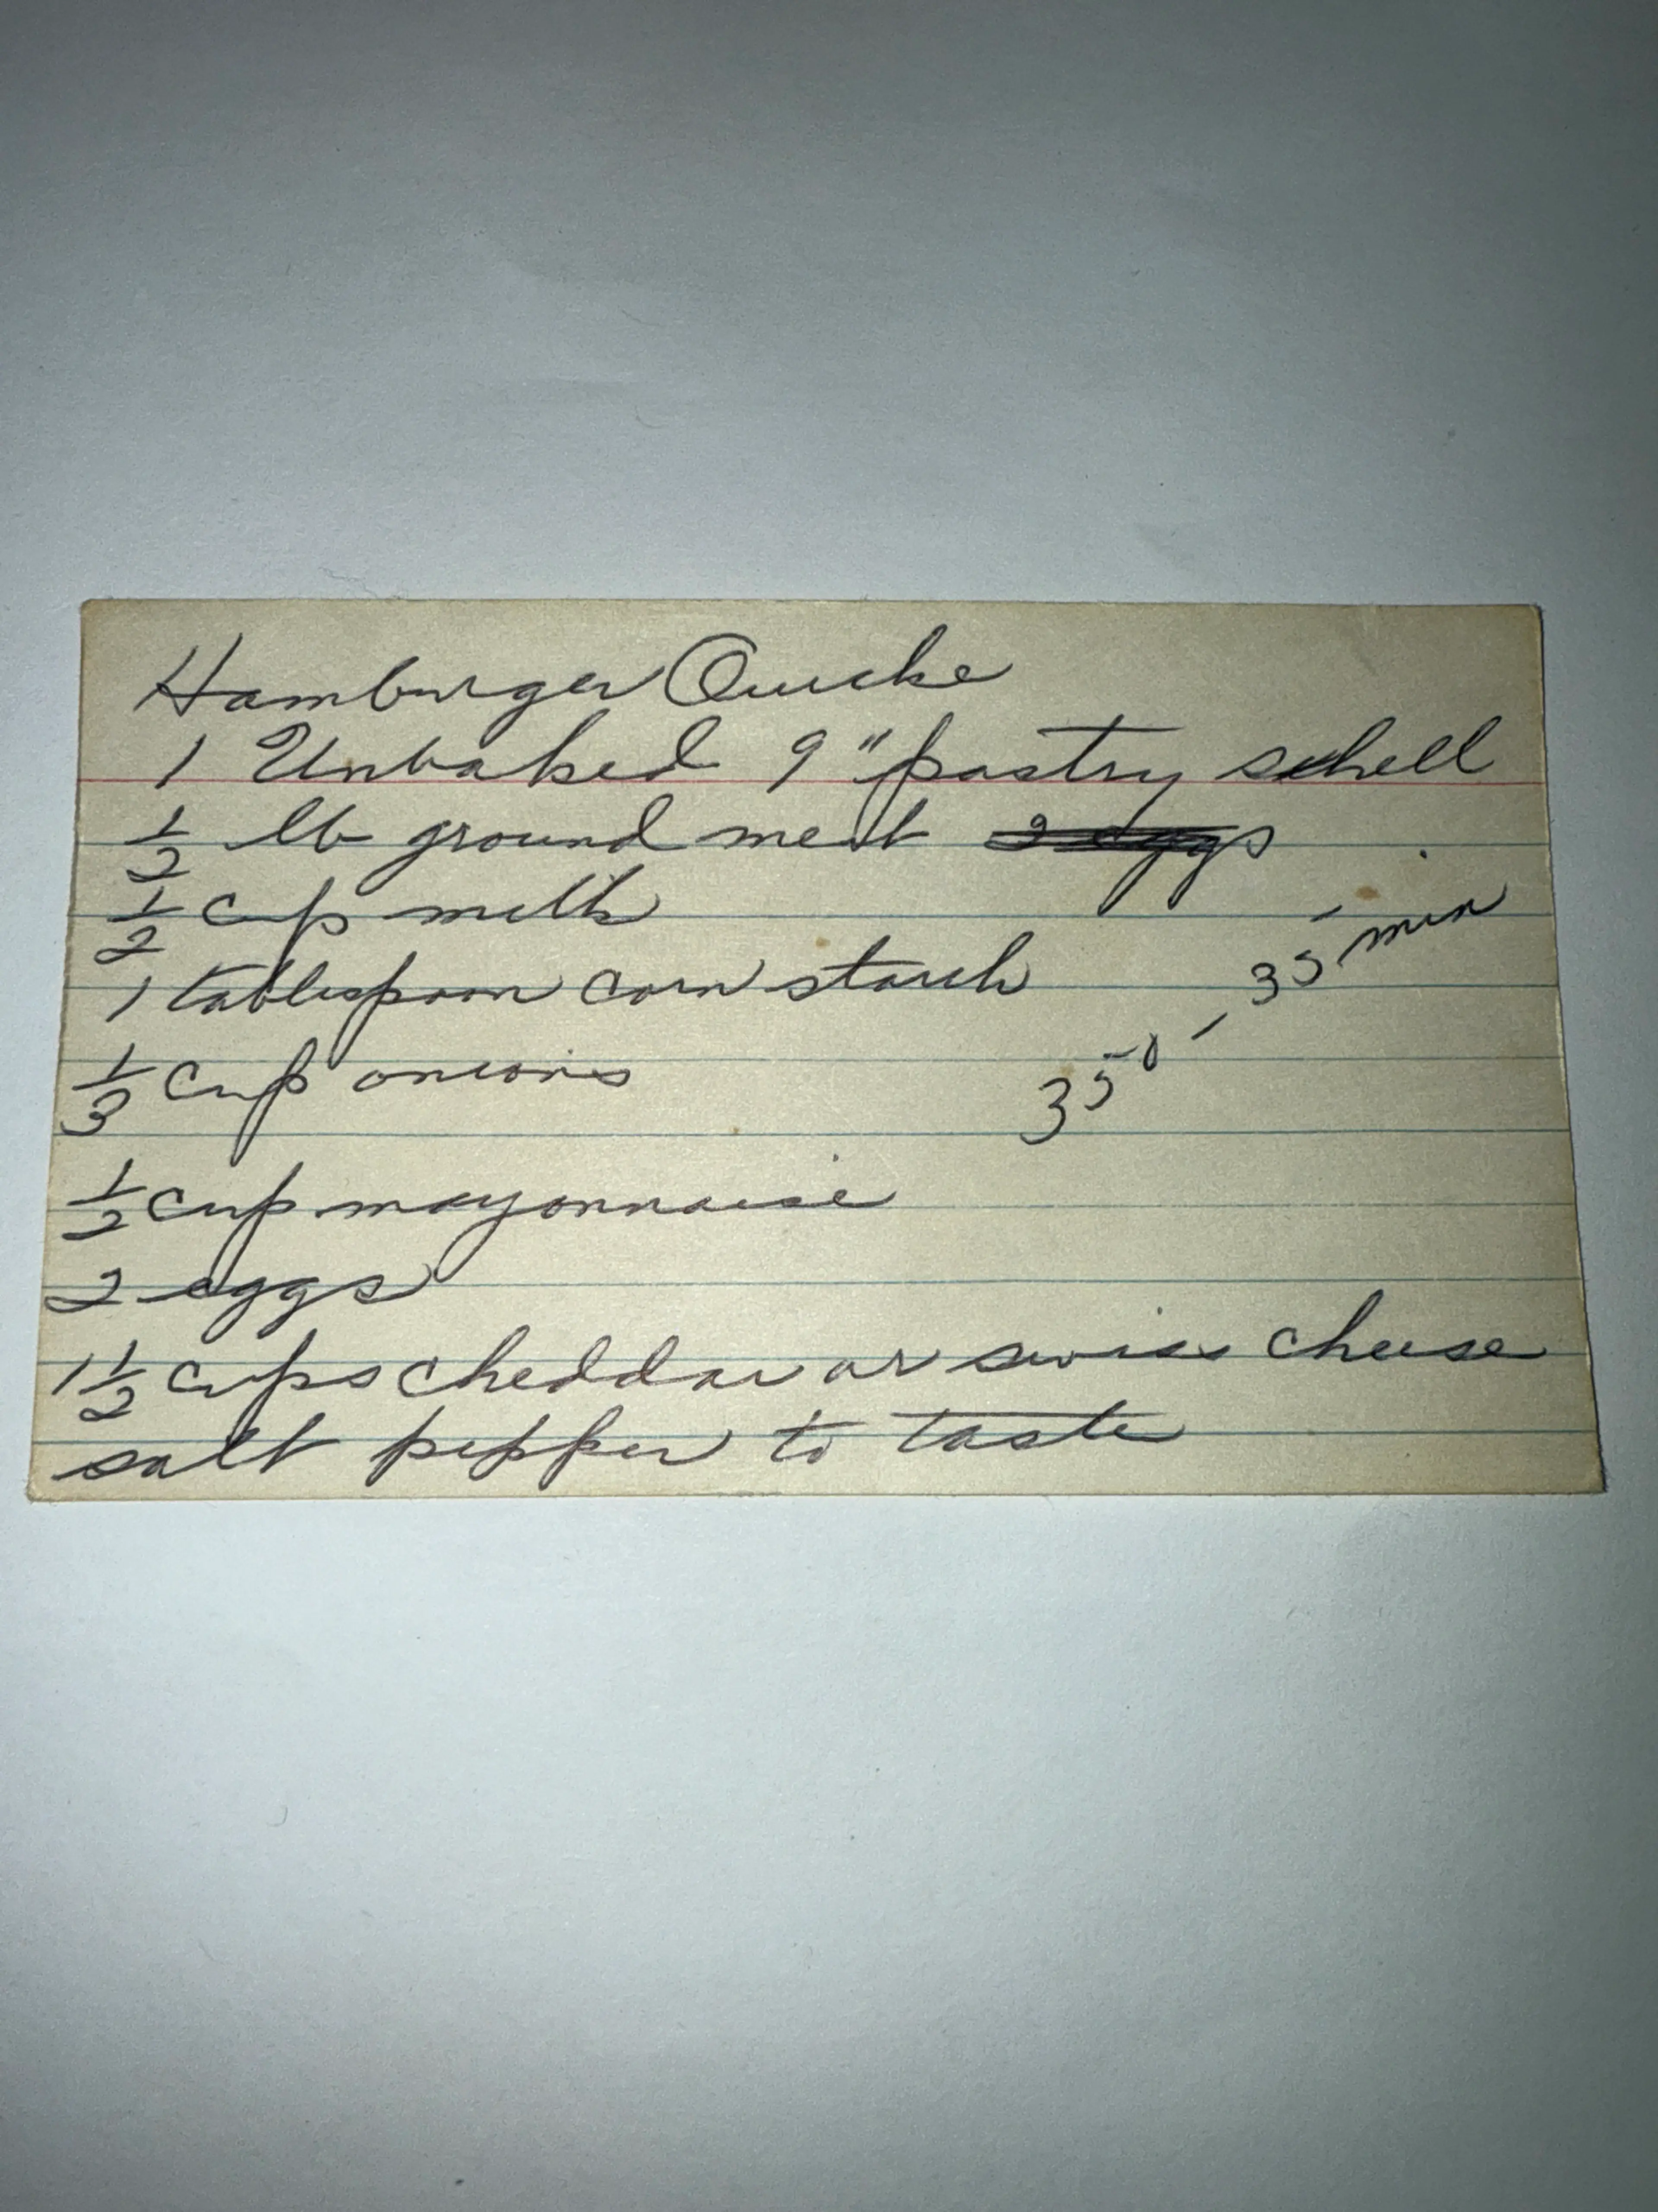 Hamburger Quiche
1 Unbaked 9" pastry schell
1/2 lb ground meat 2 eggs
1/2 cup milk
1 tablespoon corn starch
350 - 35 min
1/3 cup onions
1/2 cup mayonnaise
2 eggs
1 1/2 cups cheddar or swiss cheese
salt pepper to taste